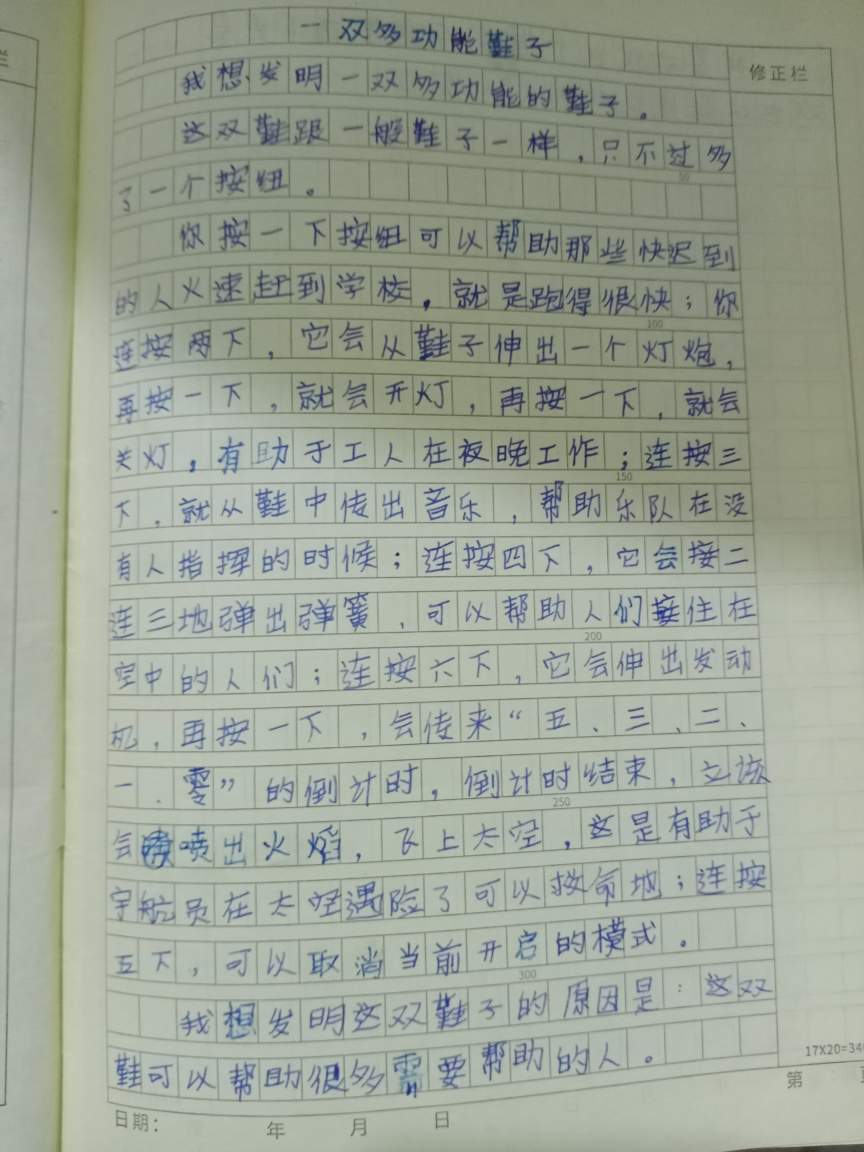 一双多功能鞋子
修正栏
我想发明一双多功能的鞋子。
这双鞋跟一般鞋子一样，只不过多
了一个按纽。
你按一下按纽可以帮助那些快迟到
的人火速赶到学校，就是跑得很快；你
连按两下，它会从鞋子伸出一个灯炮，
再按一下，就会开灯，再按一下，就会
关灯，有助于工人在夜晚工作；连按三
下，就从鞋中传出音乐，帮助乐队在没
有人指挥的时候；连按四下，它会接二
连三地弹出弹簧，可以帮助人们接住在
空中的人们；连按六下，它会伸出发动
机，再按一下，会传来“五、三、二、
一．零”的倒计时，倒计时结束，立该
会喷出火焰，飞上太空，这是有助于
宇航员在太空遇险了可以救命地；连按
五下，可以取消当前开启的模式。
我想发明这双鞋子的原因是：这双
鞋可以帮助很多需要帮助的人。
50
100
150
200
250
300
17X20=34
日期： 年 月 日
第
栏